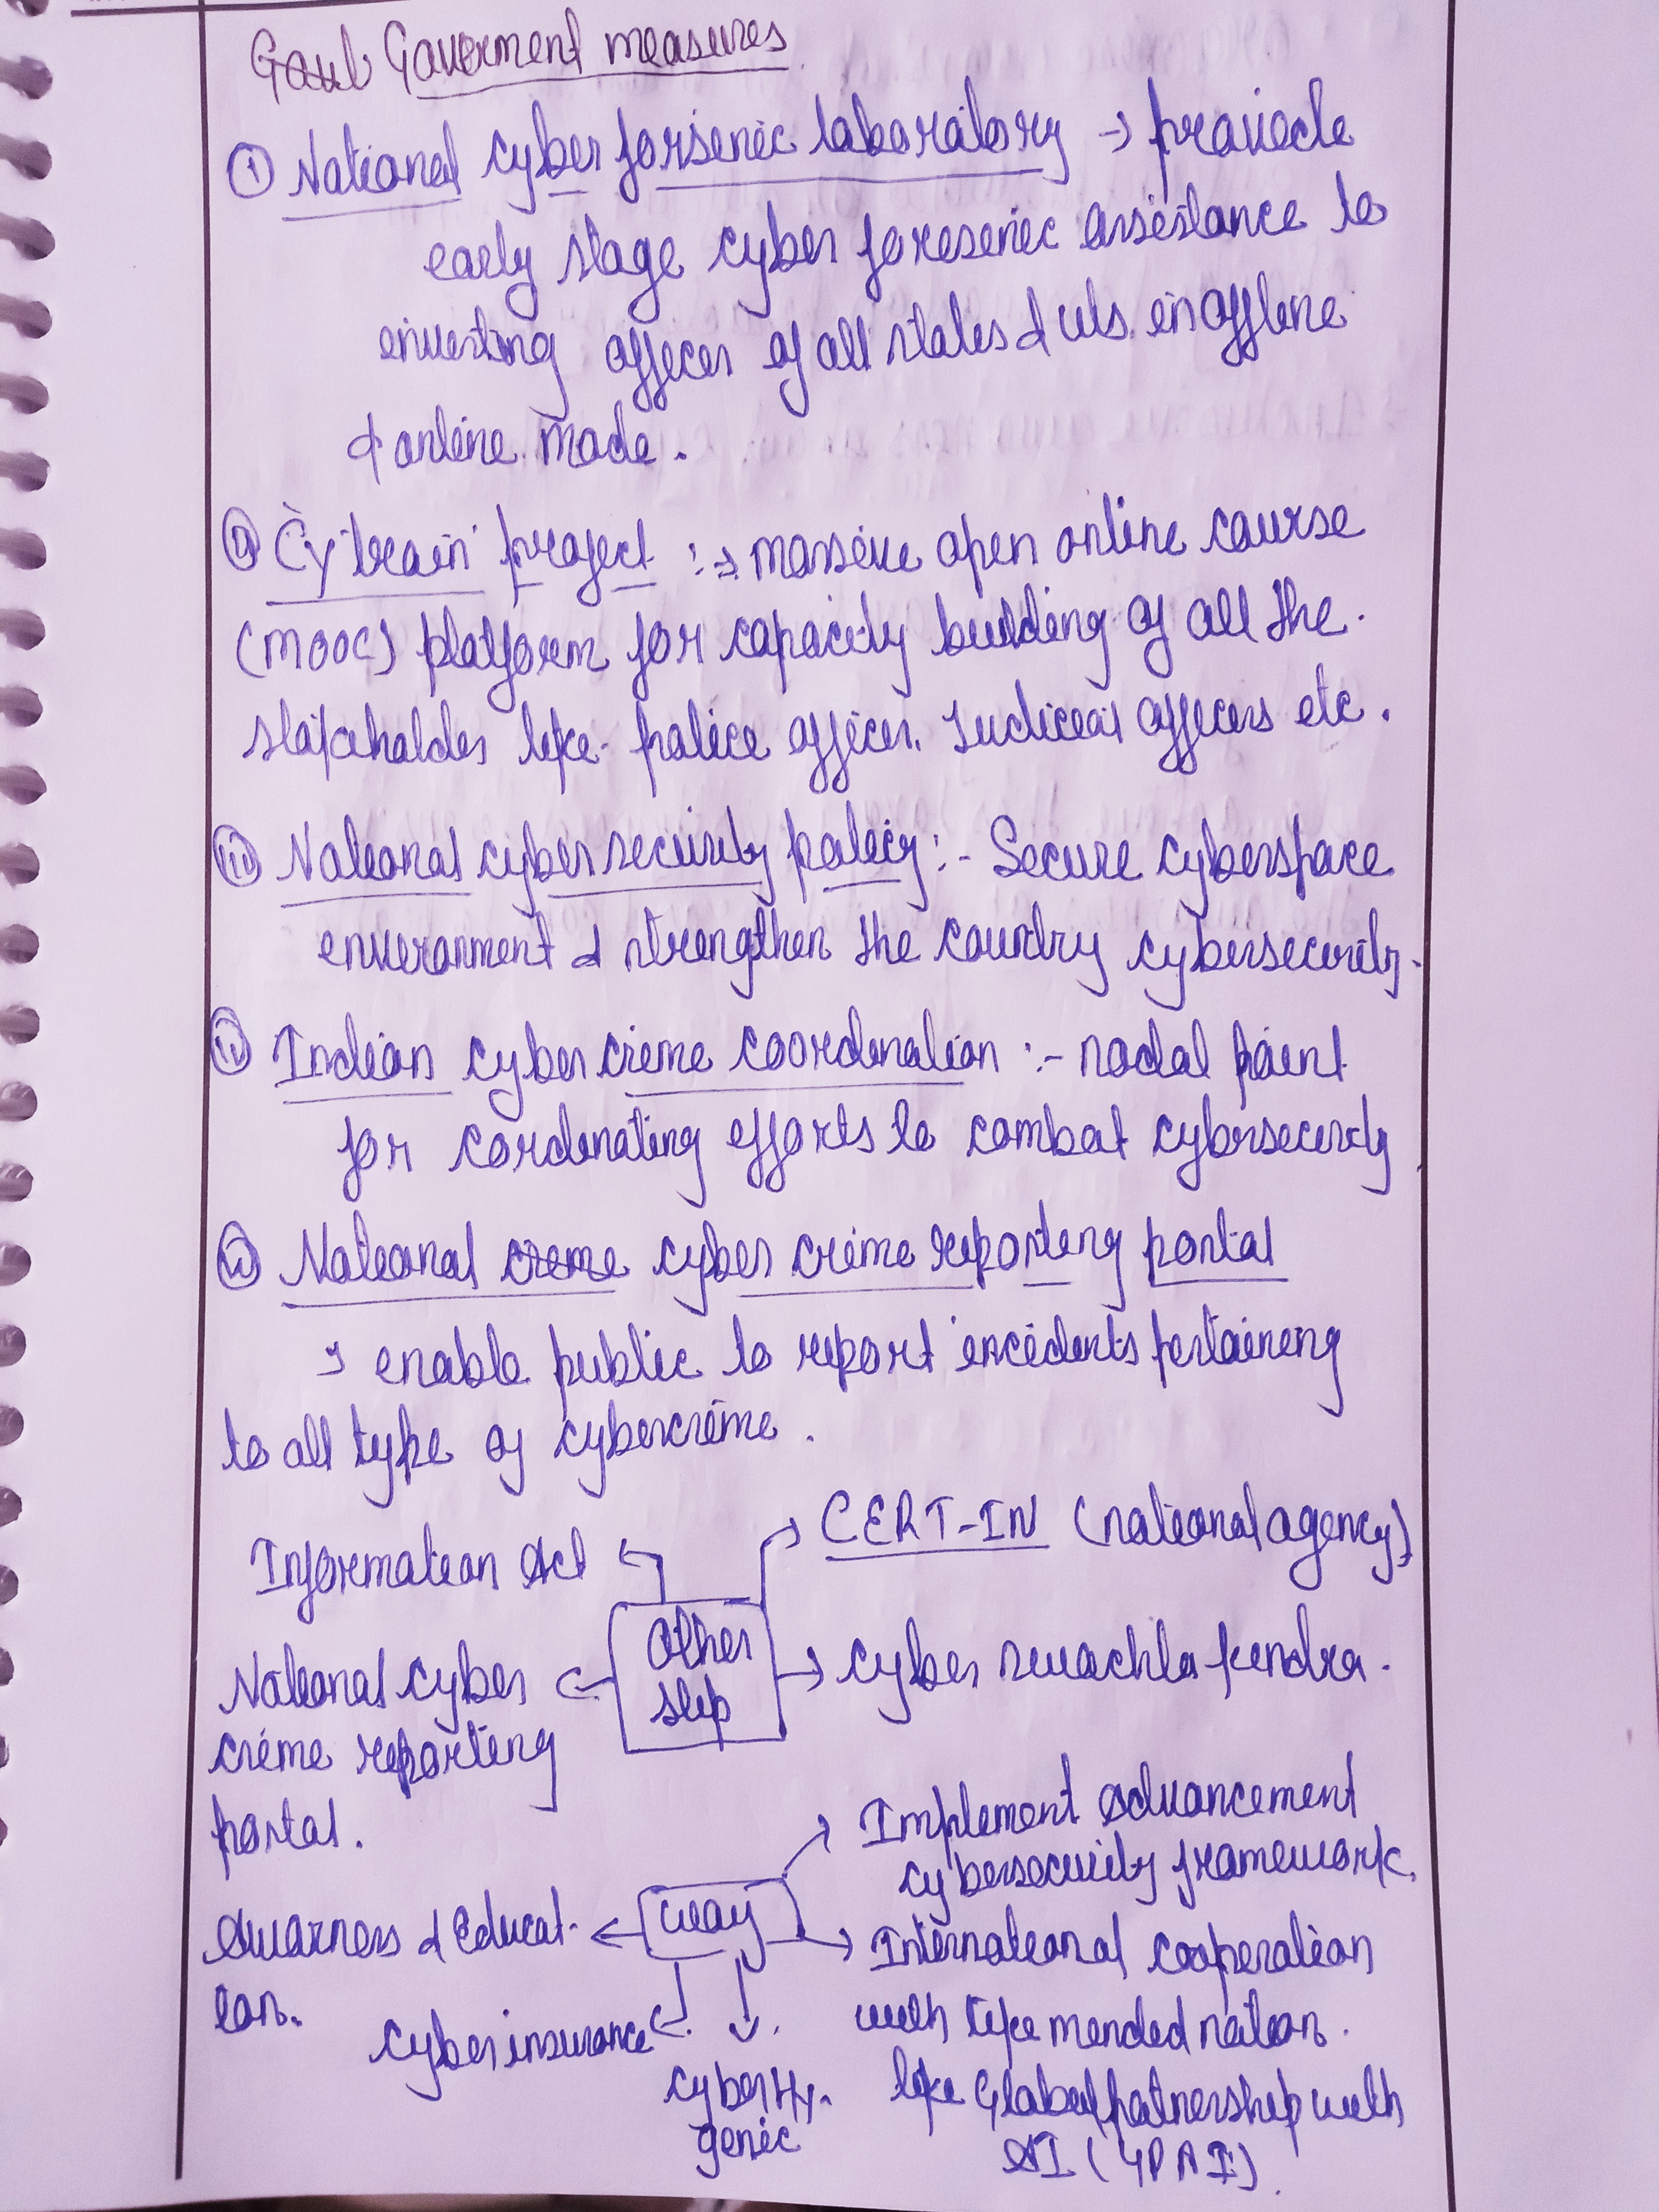 Government measures
① National cyber forsenic laboratory → provide
early stage cyber foresenic assistance to
investing officer of all states & uts. in offline
& online mode.
ⓘⓘ Cytrain project :→ massive open online course
(MOOC) platform for capacity building of all the
stakeholder like police officer, Judicial officers etc.
ⓘⓘⓘ National cyber security policy :- Secure cyberspace
environment & strengthen the country cybersecurity.
ⓘⓥ Indian cyber crime coordination :- nodal point
for cordinating efforts to combat cybersecurity
ⓥ National crime cyber crime reporting portal
→ enable public to report incidents pertaining
to all type of cybercrime.
Information Act
CERT-IN (national agency)
other
step
National cyber
crime reporting
portal.
cyber swachta kendra.
way
Implement advancement
cybersecurity framework.
Awarness & Educat-
ion.
International cooperation
with like minded nation.
like Global patnership with
AI (GPAI)
cyber insurance
cyber Hy-
genic